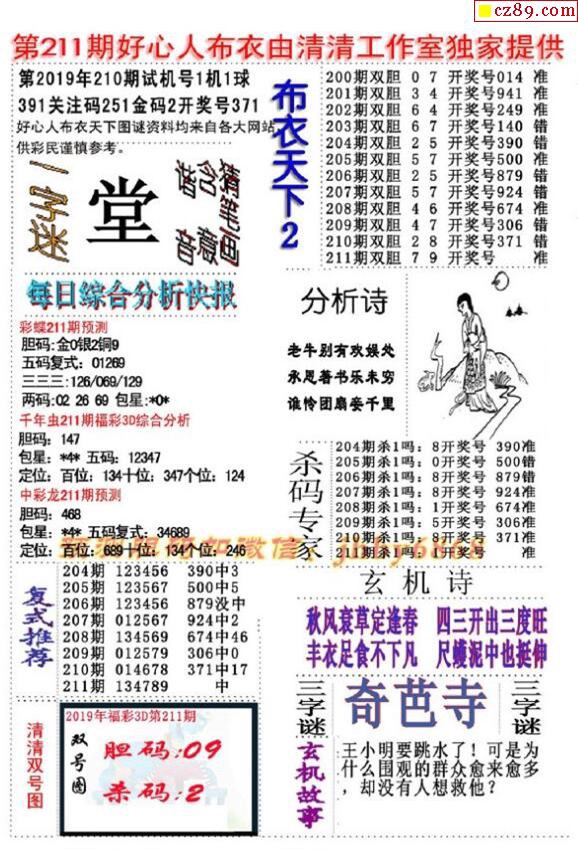 cz89.com
第211期好心人布衣由清清工作室独家提供
第2019年210期试机号1机1球
391关注码251金码2开奖号371
好心人布衣天下图谜资料均来自各大网站
供彩民谨慎参考。
一字迷
堂
猜笔画
含薇
谐音
布衣天下2
200期双胆 0 7 开奖号014 准
201期双胆 3 4 开奖号941 准
202期双胆 6 4 开奖号249 准
203期双胆 6 7 开奖号140 错
204期双胆 2 5 开奖号390 错
205期双胆 5 7 开奖号500 准
206期双胆 2 5 开奖号879 错
207期双胆 5 7 开奖号924 错
208期双胆 4 6 开奖号674 准
209期双胆 4 7 开奖号306 错
210期双胆 2 8 开奖号371 错
211期双胆 7 9 开奖号 准
每日綜合分析快报
彩蝶211期预测
胆码:金0银2铜9
五码复式: 01269
三三三:126/069/129
两码:02 26 69 包星:*0*
千年虫211期福彩3D综合分析
胆码: 147
包星: *4* 五码: 12347
定位: 百位: 134十位: 347个位: 124
中彩龙211期预测
胆码: 468
包星: *4* 五码复式: 34689
定位: 百位: 689十位: 134个位: 246
分析诗
老牛别有欢娱处
永恩著书乐未穷
谁怜团扇妾千里
杀码专家
204期杀1吗: 8开奖号 390准
205期杀1吗: 0开奖号 500错
206期杀1吗: 8开奖号 879错
207期杀1吗: 8开奖号 924准
208期杀1吗: 1开奖号 674准
209期杀1吗: 5开奖号 306准
210期杀1吗: 8开奖号 371准
211期杀1吗: 1开奖号 准
复式推荐
204期 123456 390中3
205期 123567 500中5
206期 123456 879没中
207期 012567 924中2
208期 134569 674中46
209期 012579 306中0
210期 014678 371中17
211期 134789 中
玄机诗
秋风衰草定逢春 四三开出三度旺
丰衣足食不下凡 尺蠖泥中也挺伸
清清双号图
2019年福彩3D第211期
双号图
胆码:09
杀码:2
三字谜
奇芭寺
三字谜
玄机故事
王小明要跳水了！可是为
什么围观的群众愈来愈多
，却没有人想救他？